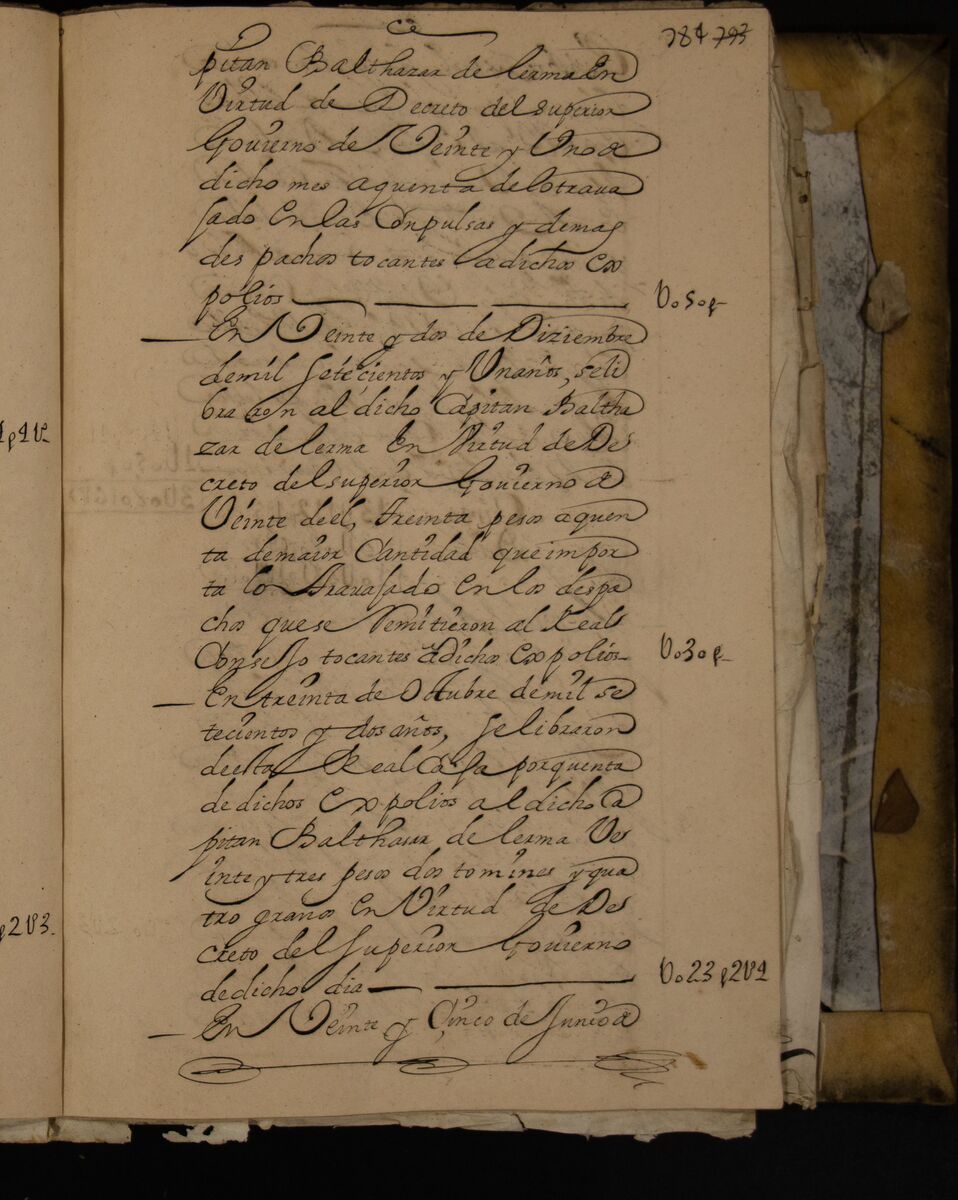 784 793
pitan Balthazar de lerma En
Virtud de Decreto del superior
Govierno de Veinte y Uno de
dicho mes aquenta de lo trava
jado En las Conpulsas y demas
des pachos tocantes a dichos ex
polios
Vo50p
En Veinte y dos de Diziembre
de mil setecientos y Un años, se li
braron al dicho Capitan Baltha
zar de lerma En Virtud de De
creto del superior Govierno de
Veinte de el, treinta pesos a quen
ta de maior Cantidad que impor
ta lo travajado En los despa
chos que se Remitieron al Real
Consejo tocantes a dichos expolios
Vo30p
En treinta de Octubre de mil se
tecientos y dos años, se libraron
de esta Real Caja por quenta
de dichos expolios al dicho Ca
pitan Balthasar de lerma Ve
inte y tres pesos dos tomines y qua
tro granos En Virtud de De
creto del superior Govierno
de dicho dia
Vo23p2V4
En Veinte y Cinco de Junio de